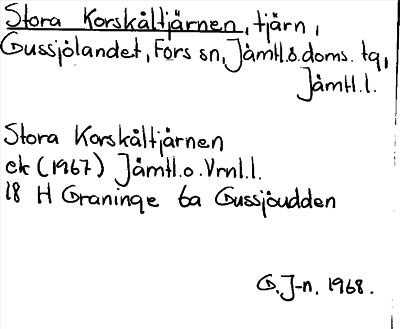 Stora Korskåltjärnen, tjärn,
Gussjölandet, Fors sn, Jämtl.s.doms. tg,
Jämtl.l.
Stora Korskåltjärnen
ek (1967) Jämtl.o.Vrnl.l.
18 H Graninge 6a Gussjöudden
G.J-n. 1968.